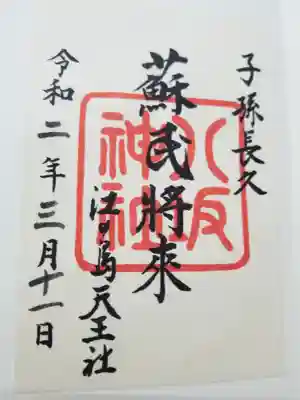 子孫長久
蘇民將來
江ノ島天王社
令和二年三月十一日
八坂
神社